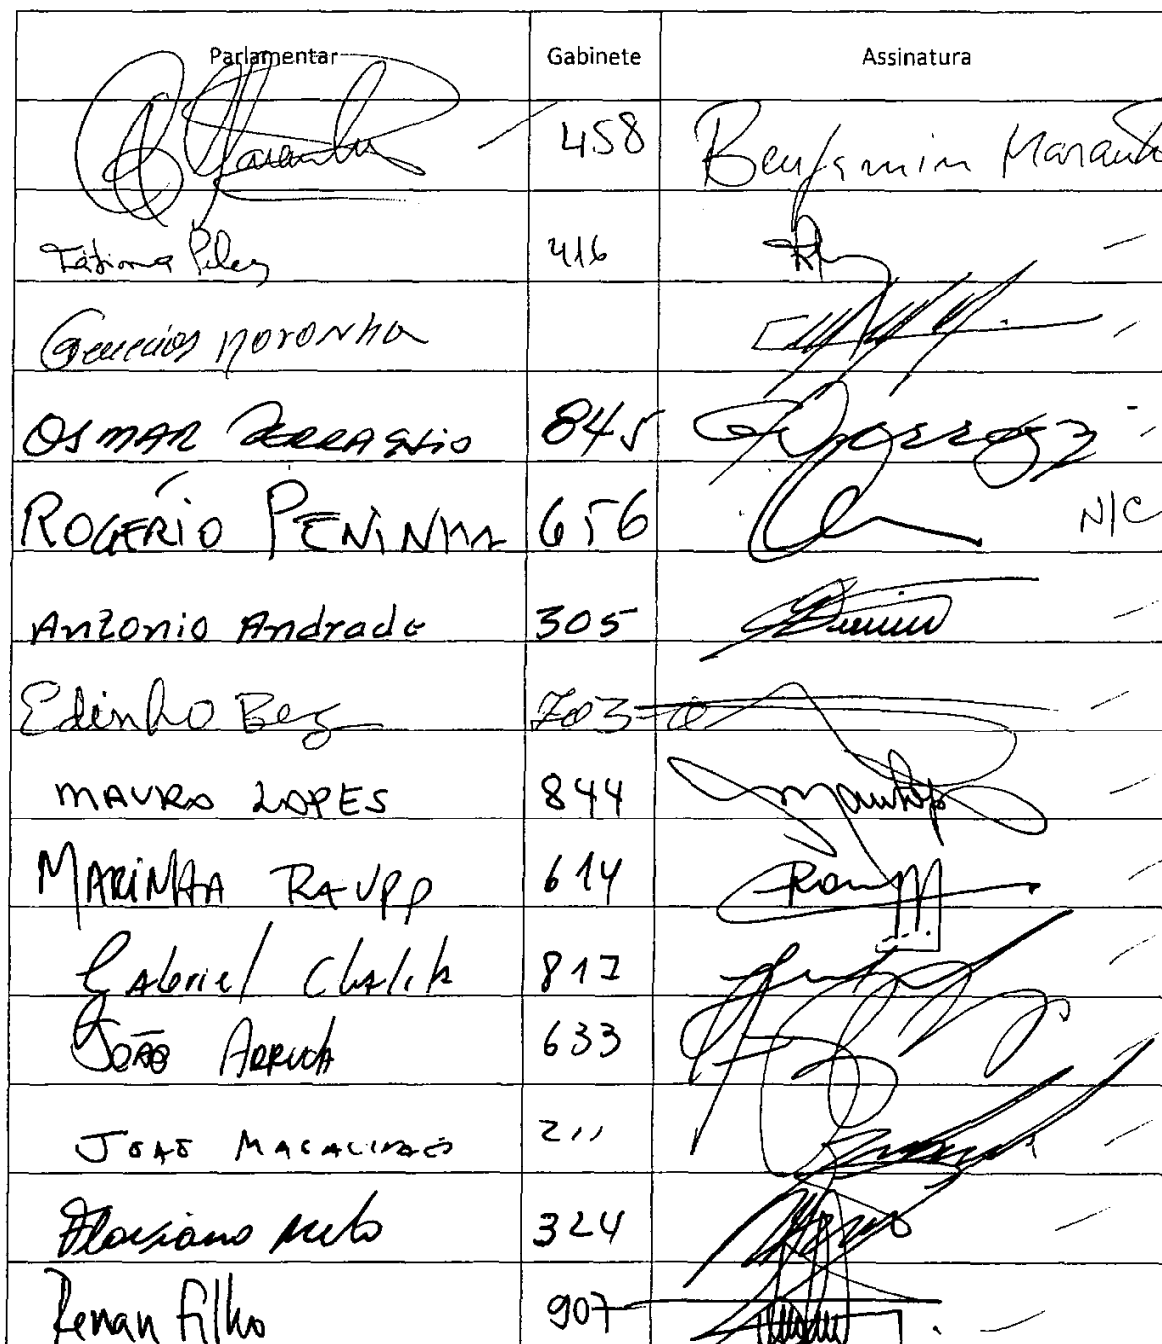 Parlamentar Gabinete Assinatura
458 Benjamin Maranhão
Fátima Pelaes 416
Genecias Noronha
OSMAR SERRAGLIO 845
ROGÉRIO PENINHA 656 N/C
Antonio Andrade 305
Edinho Bez 703
MAURO LOPES 844
MARINHA RAUPP 614
GAbriel ChAlitA 817
JOÃO ARRUDA 633
JOÃO MAGALHÃES 211
Flaviano Melo 324
Renan Filho 907